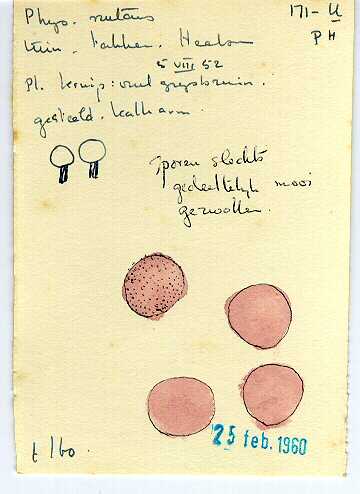 Phys. nutans
171-U
tuin. takken. Heelsum
PH
5 VIII 52
Pl. kruip: vuil grijsbruin.
gesteeld. kalkarm.
sporen slechts
gedeeltelijk mooi
gezwollen.
25 feb. 1960
t 160.